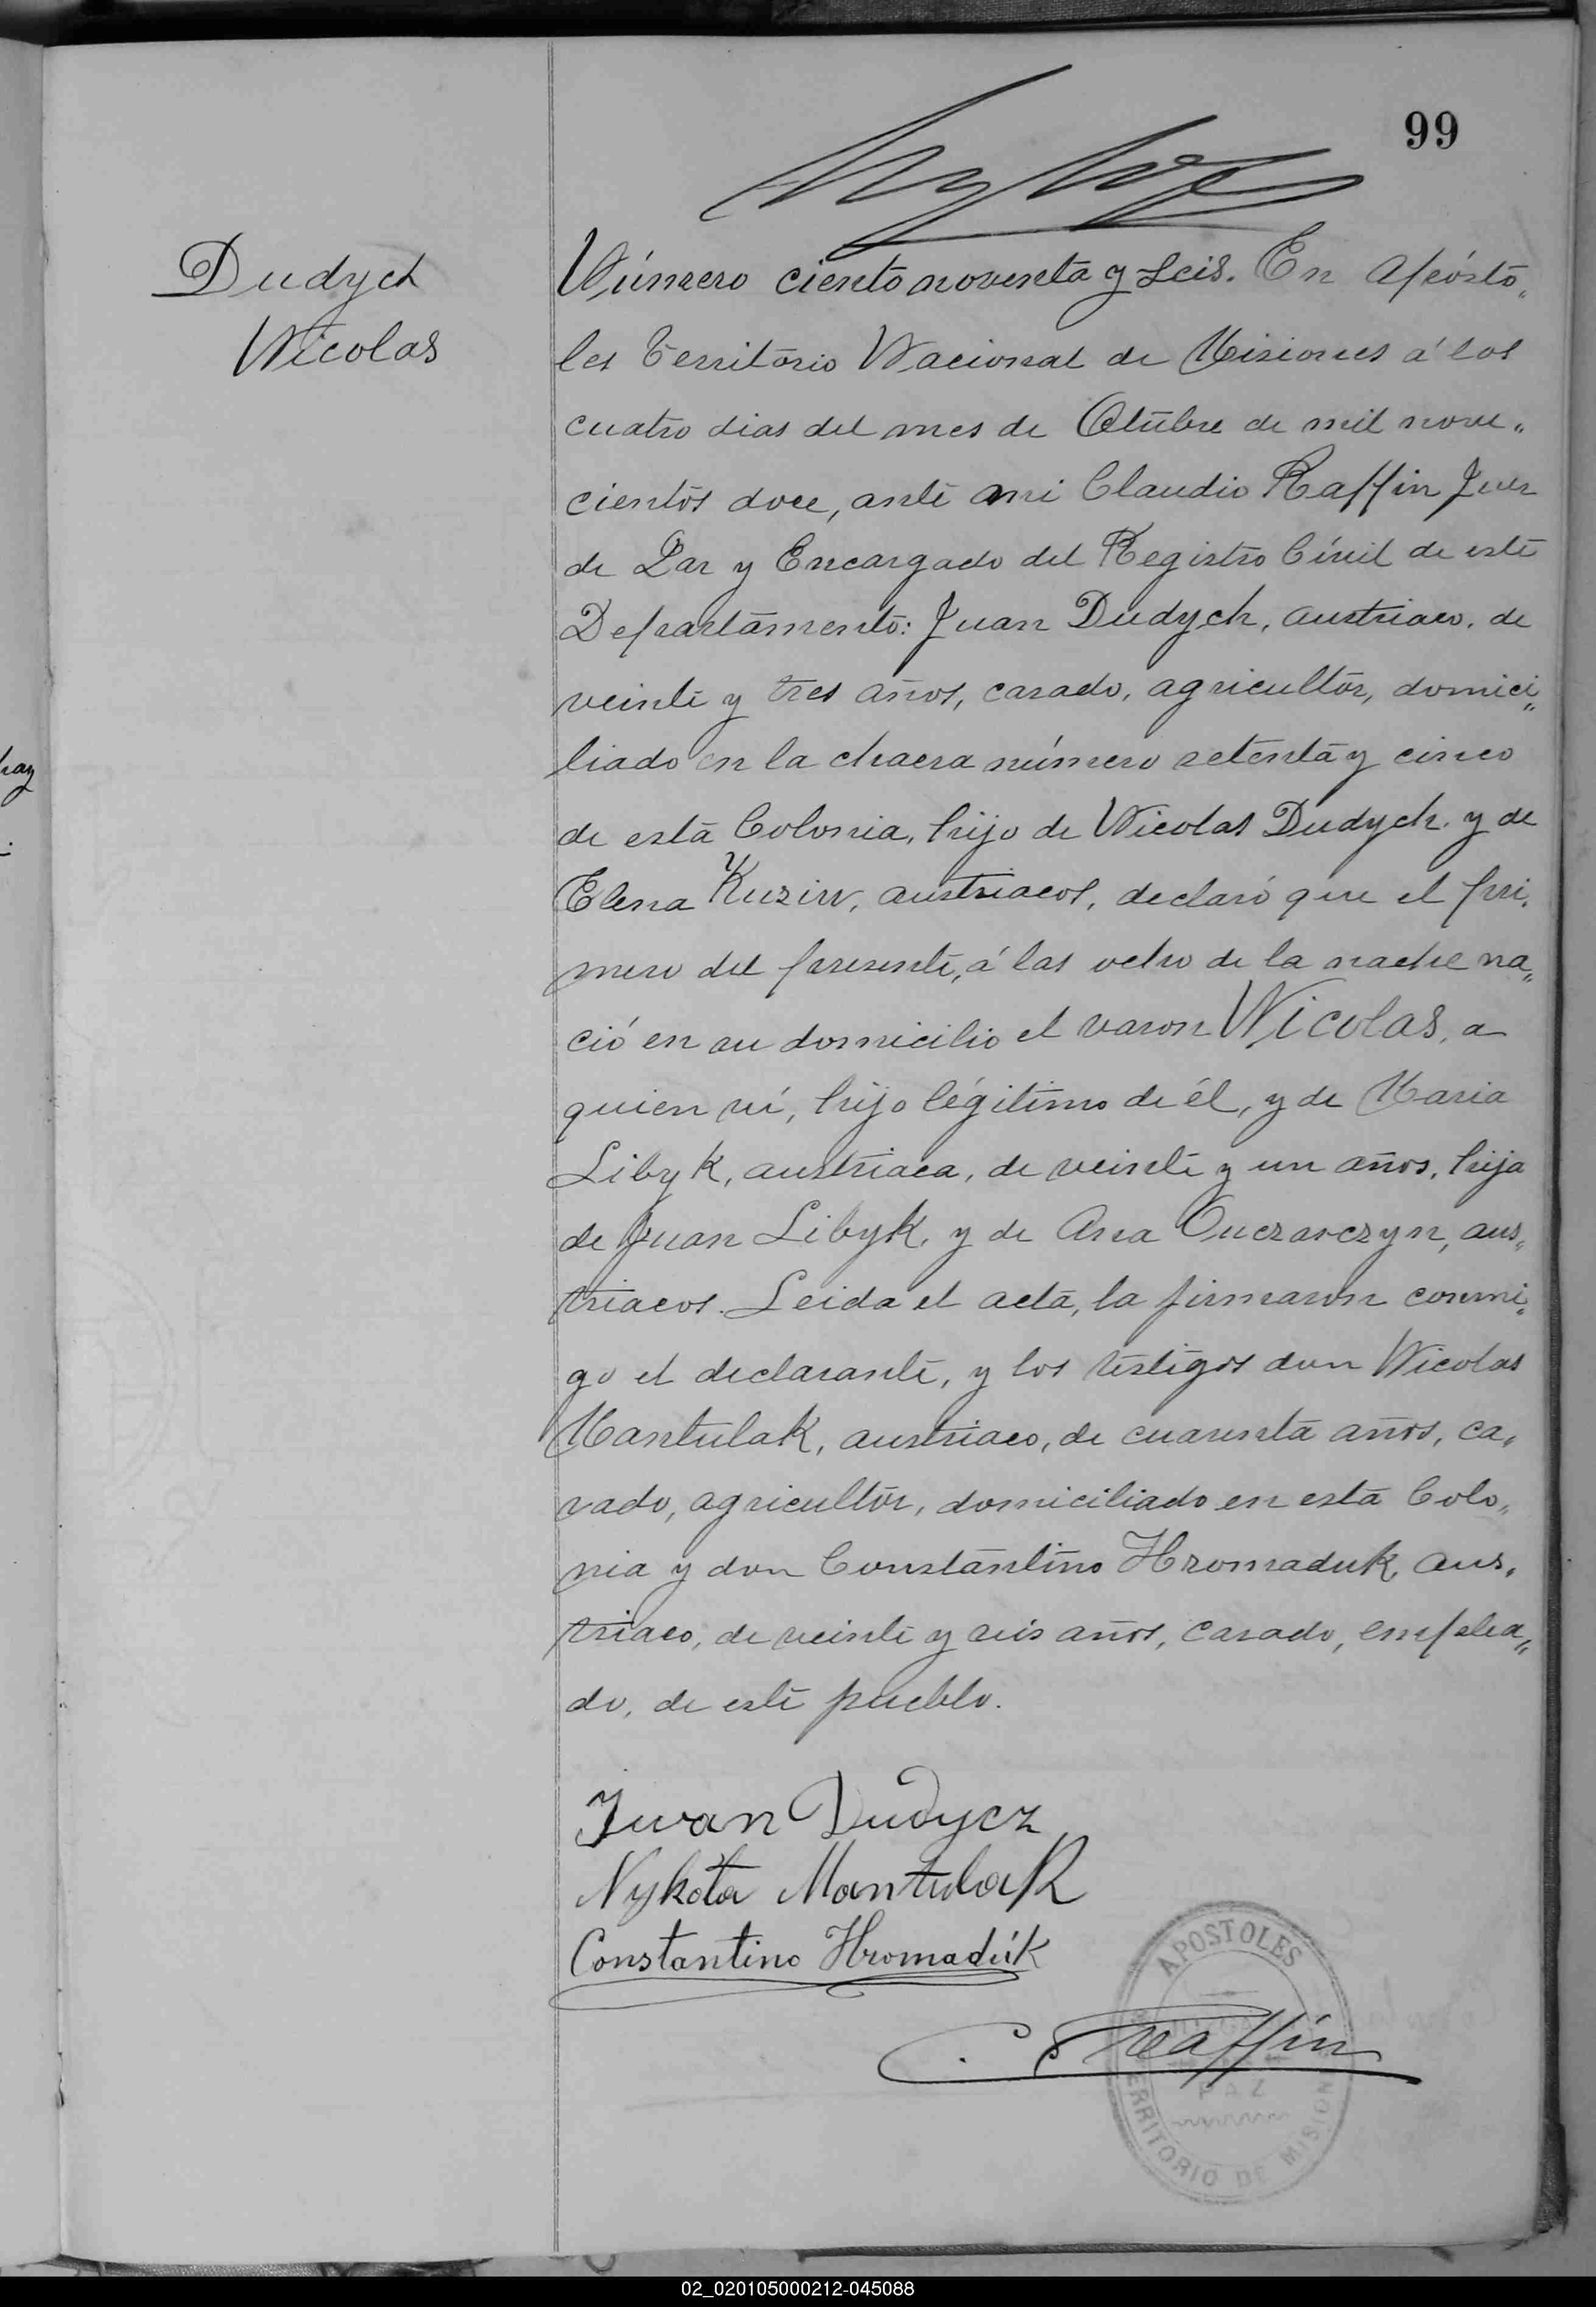 99
Dudych
Nicolas
Número ciento noventa y seis. En Apósto„
les Territorio Nacional de Misiones á los
cuatro dias del mes de Otubre de mil nove„
cientos doce, ante mi Claudio Raffin Juez
de Paz y Encargado del Registro Cívil de este
Departamento: Juan Dudych, austriaco, de
veinte y tres años, casado, agricultor, domici„
liado en la chacra número setenta y cinco
de esta Colonia, hijo de Nicolas Dudych y de
Elena Kuziw, austriacos, declaró que el pri„
mero del presente, á las ocho de la noche na„
ció en su domicilio el varon Nicolas, a
quien ví, hijo légitimo de él, y de Maria
Libyk, austriaca, de veinte y un años, hija
de Juan Libyk, y de Ana Owczarczyn, aus„
triacos. Leida el acta, la firmaron conmi„
go el declarante, y los testigos don Nicolas
Mantulak, austriaco, de cuarenta años, ca„
sado, agricultor, domiciliado en esta Colo„
nia y don Constantino Hromaduk, aus„
triaco, de veinte y seis años, casado, emplea„
do, de este pueblo.
Iwan Dudycz
Nykota Mantulak
Constantino Hromadúk
C. Raffin
APOSTOLES
PAZ
TERRITORIO DE MISIONES
02_020105000212-045088